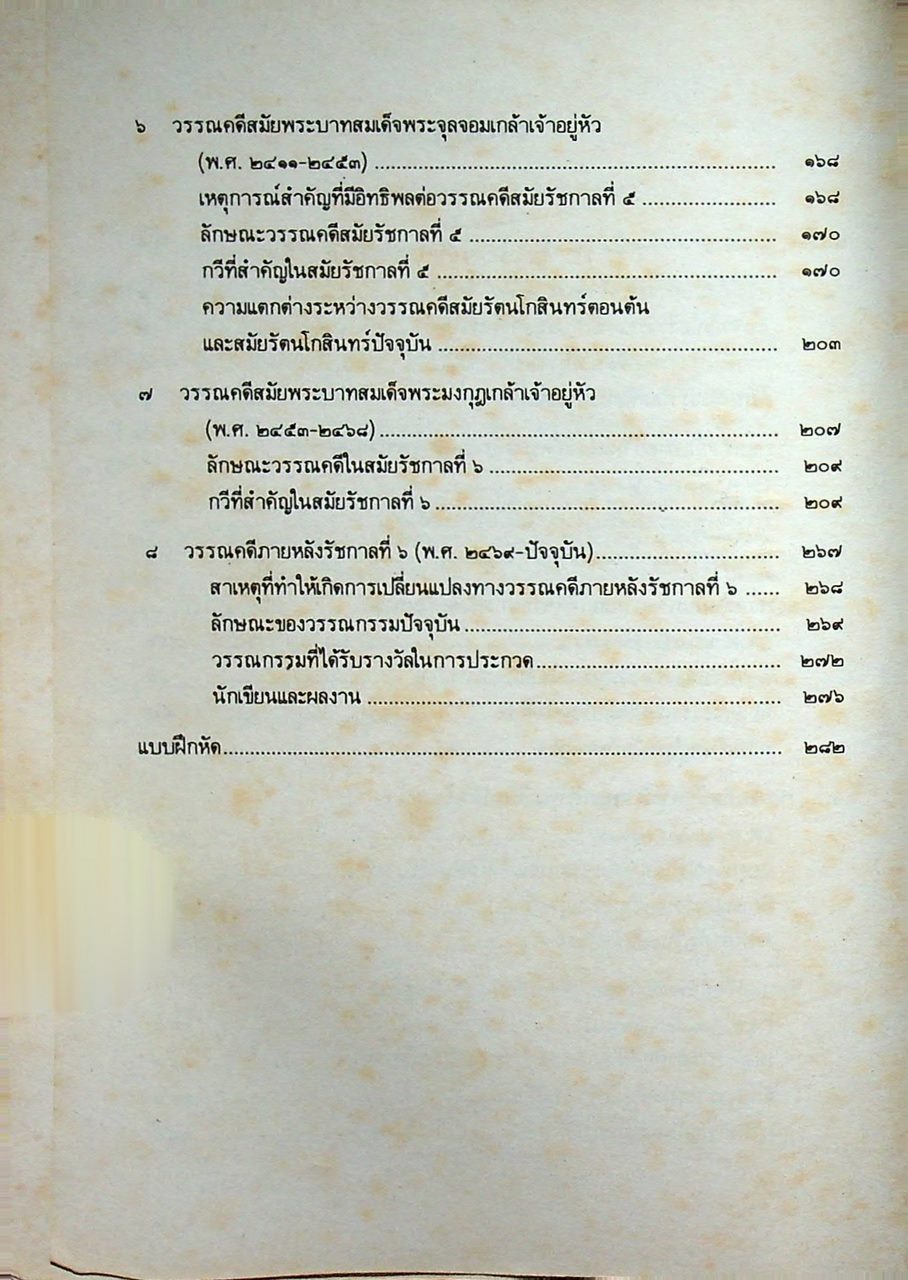 ๖ วรรณคดีสมัยพระบาทสมเด็จพระจุลจอมเกล้าเจ้าอยู่หัว
(พ.ศ. ๒๔๑๑-๒๔๕๓) ................................ ๑๖๘
เหตุการณ์สำคัญที่มีอิทธิพลต่อวรรณคดีสมัยรัชกาลที่ ๕ ................ ๑๖๘
ลักษณะวรรณคดีสมัยรัชกาลที่ ๕ ................................ ๑๗๐
กวีที่สำคัญในสมัยรัชกาลที่ ๕ ................................ ๑๗๐
ความแตกต่างระหว่างวรรณคดีสมัยรัตนโกสินทร์ตอนต้น
และสมัยรัตนโกสินทร์ปัจจุบัน ................................ ๒๐๓
๗ วรรณคดีสมัยพระบาทสมเด็จพระมงกุฎเกล้าเจ้าอยู่หัว
(พ.ศ. ๒๔๕๓-๒๔๖๘) ................................ ๒๐๗
ลักษณะวรรณคดีในสมัยรัชกาลที่ ๖ ................................ ๒๐๙
กวีที่สำคัญในสมัยรัชกาลที่ ๖ ................................ ๒๐๙
๘ วรรณคดีภายหลังรัชกาลที่ ๖ (พ.ศ. ๒๔๖๙-ปัจจุบัน)................ ๒๖๗
สาเหตุที่ทำให้เกิดการเปลี่ยนแปลงทางวรรณคดีภายหลังรัชกาลที่ ๖ ...... ๒๖๘
ลักษณะของวรรณกรรมปัจจุบัน ................................ ๒๖๙
วรรณกรรมที่ได้รับรางวัลในการประกวด................................ ๒๗๒
นักเขียนและผลงาน ................................ ๒๗๖
แบบฝึกหัด................................ ๒๘๒